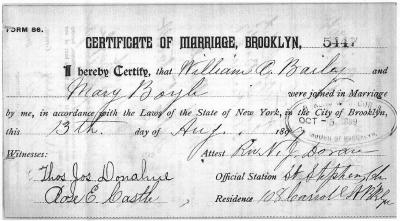 FORM 86.
CERTIFICATE OF MARRIAGE, BROOKLYN, 5447
I hereby Certify, that William A. Bailey and
Mary Boyle were joined in Marriage
by me, in accordance with the Laws of the State of New York, in the City of Brooklyn,
this 13th day of Aug. 189
OCT
OF BROOKLYN
Witnesses: Attest Rev. N. J. Doran
Thos Jos. Donahue Official Station St Stephens
Rose E. Castle Residence 108 Carroll St Bklyn